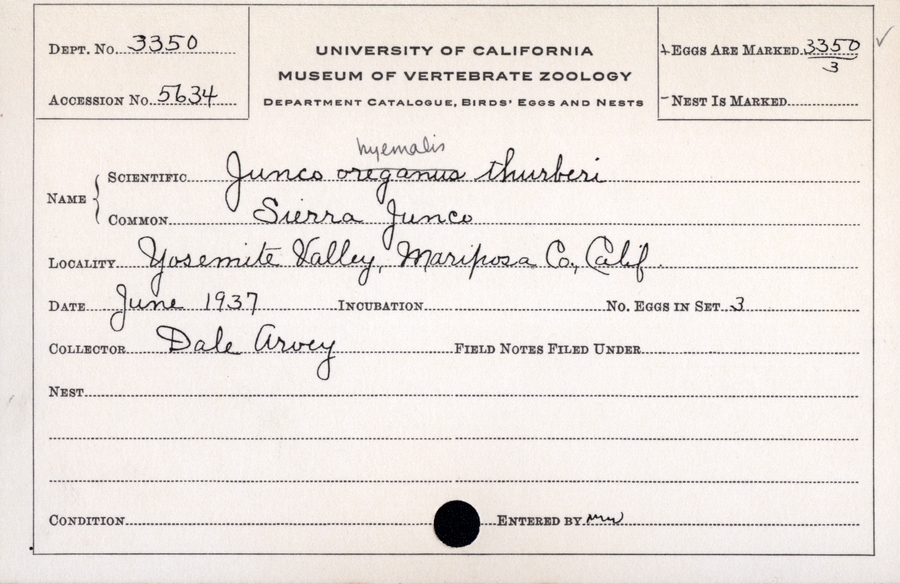 Dept. No. 3350
Accession No. 5634
UNIVERSITY OF CALIFORNIA
MUSEUM OF VERTEBRATE ZOOLOGY
Department Catalogue, Birds' Eggs and Nests
Eggs Are Marked 3350/3
Nest Is Marked
hyemalis
Name { Scientific Junco oreganus thurberi
Common Sierra Junco
Locality Yosemite Valley, Mariposa Co., Calif.
Date June 1937 Incubation No. Eggs in Set 3
Collector Dale Arvey Field Notes Filed Under
Nest
Condition Entered by